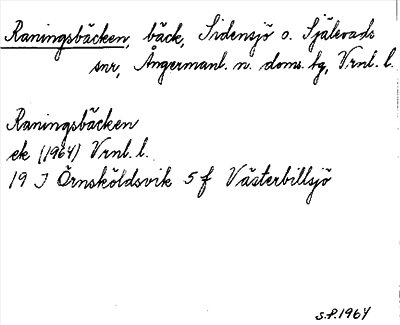 Raningsbäcken, bäck, Sidensjö o. Själevads
snr, Ångermanl. n. doms. hg, Vrnl. l.
Raningsbäcken
ek (1964) Vrnl. l.
19 J Örnsköldsvik 5 f Västerbillsjö
S.P. 1964